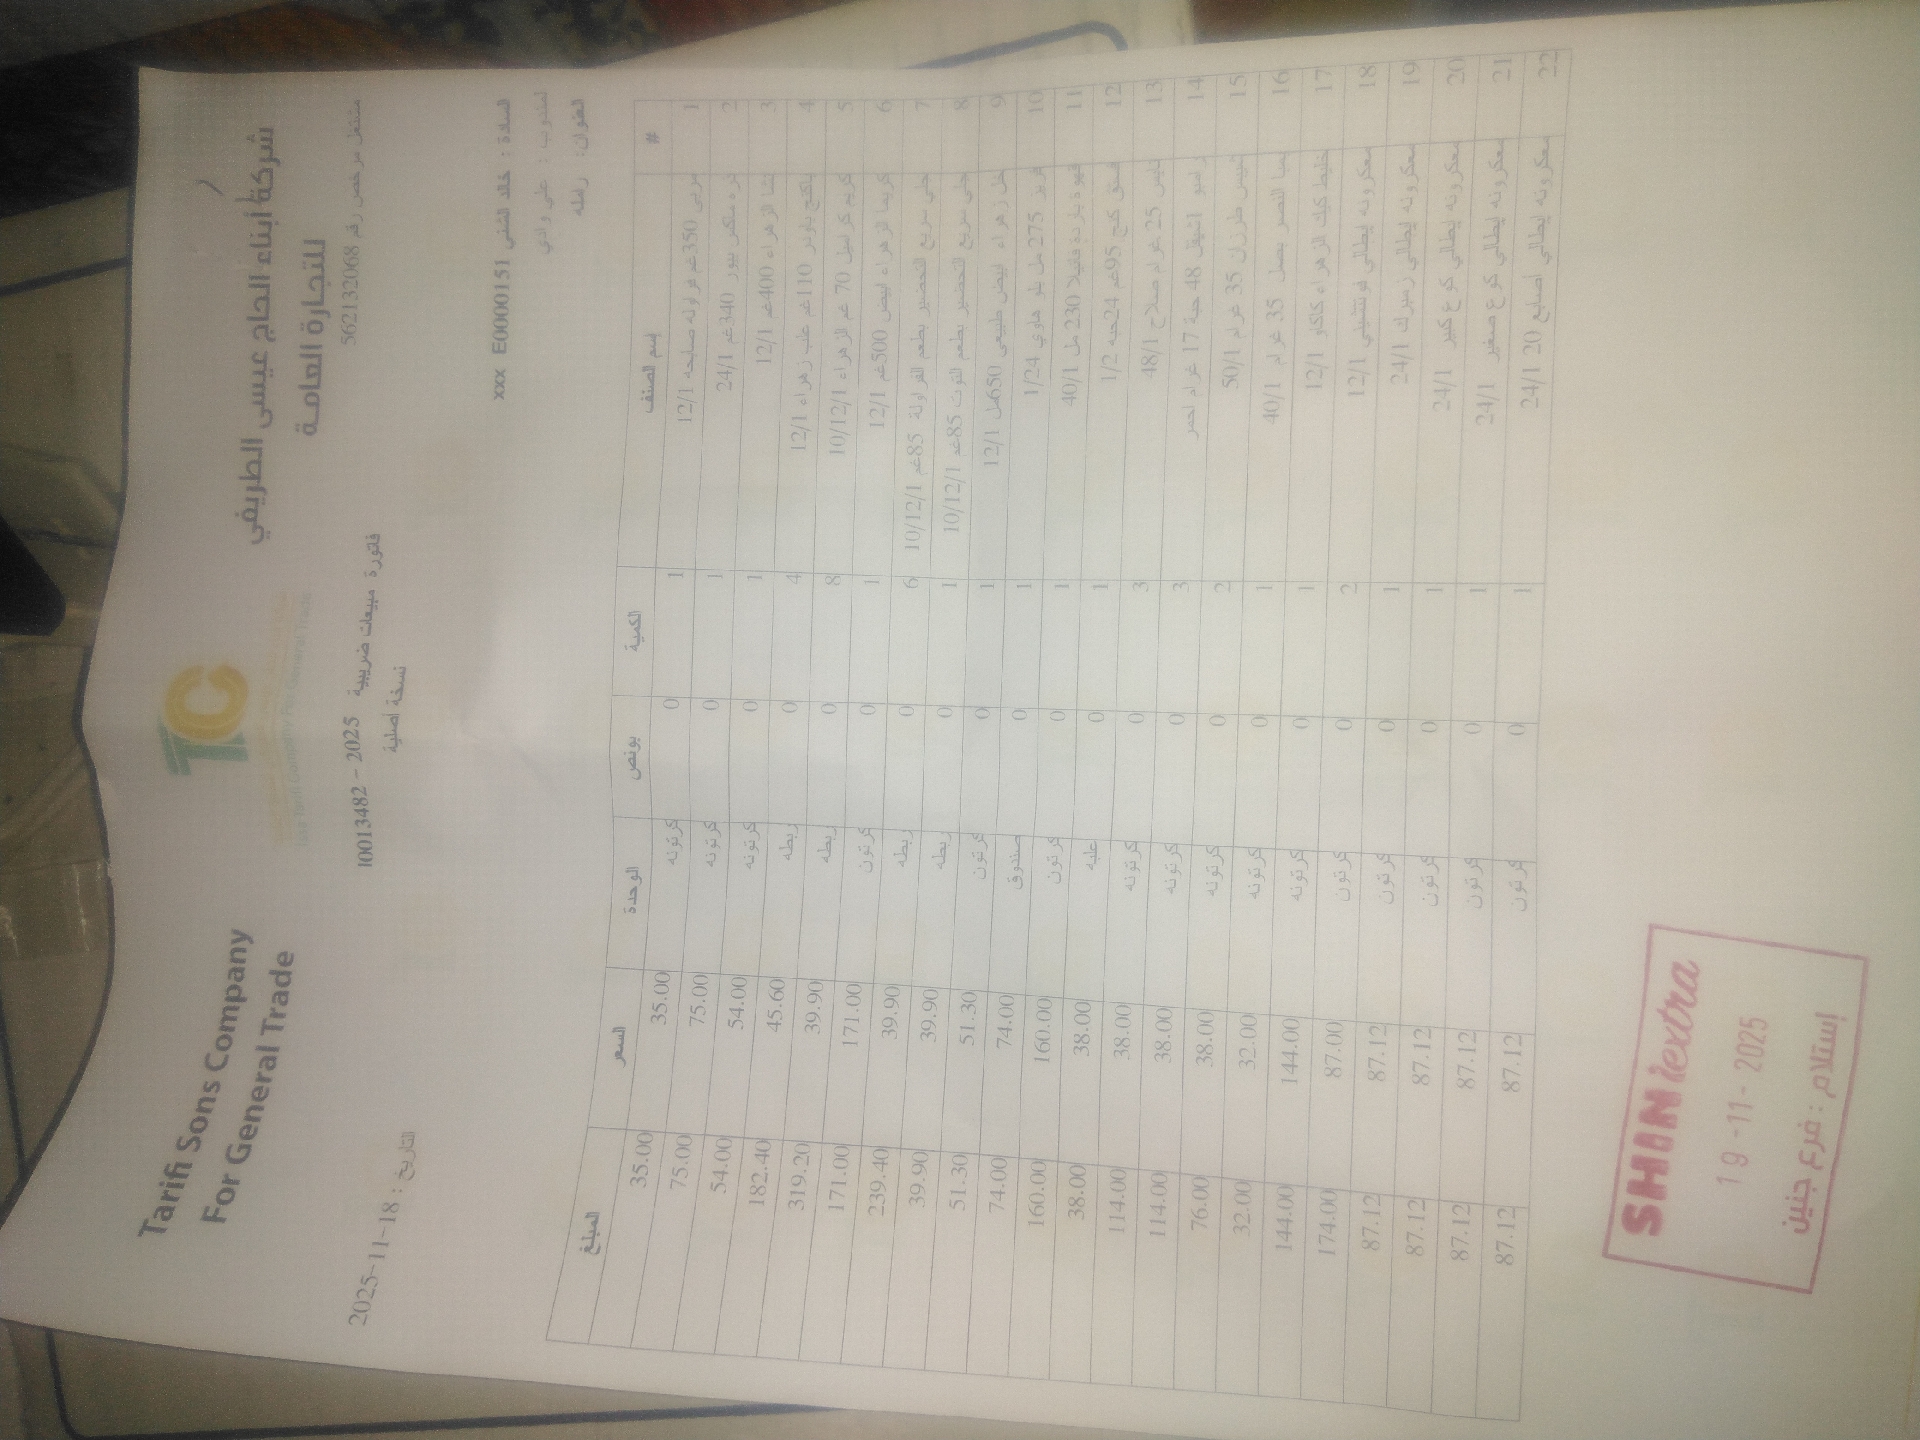 Tarifi Sons Company
For General Trade
شركة أبناء الحاج عيسى الطريفي
للتجارة العامة
TC
مشتغل مرخص رقم 562132068
فاتورة مبيعات ضريبية 2025 - 10013482
نسخة أصلية
التاريخ : 18-11-2025
السادة : خالد الشني E0000151 xxx
المندوب : علي وادي
العنوان: رامله
# إسم الصنف الكمية بونص الوحدة السعر المبلغ
1 مربى 350غم فراوله صابحه 12/1 1 0 كرتونه 35.00 35.00
2 ذره مكس بيور 340غم 24/1 1 0 كرتونه 75.00 75.00
3 نشا الزهراء 400غم 12/1 1 0 كرتونه 54.00 54.00
4 باكنج باودر 110غم علب زهراء 12/1 4 0 ربطه 45.60 182.40
5 كريم كراميل 70 غم الزهراء 10/12/1 8 0 ربطه 39.90 319.20
6 كريما الزهراء ابيض 500غم 12/1 1 0 كرتون 171.00 171.00
7 جلي سريع التحضير بطعم الفراولة 85غم 10/12/1 6 0 ربطه 39.90 239.40
8 جلي سريع التحضير بطعم التوت 85غم 10/12/1 1 0 ربطه 39.90 39.90
9 خل زهراء ابيض طبيعي 650مل 12/1 1 0 كرتون 51.30 51.30
10 فريز 275 مل بلو هاواي 1/24 1 0 صندوق 74.00 74.00
11 قهوة بارده فانيلا 230 مل 40/1 1 0 كرتون 160.00 160.00
12 كيج 95غم 24حبه 1/2 1 0 علبه 38.00 38.00
13 شيبس 25 غرام صلاح 48/1 3 0 كرتونه 38.00 114.00
14 48 حبة 17 غرام احمر 3 0 كرتونه 38.00 114.00
15 شيبس طرزان 35 غرام 50/1 2 0 كرتونه 38.00 76.00
16 النصر بصل 35 غرام 40/1 1 0 كرتونه 32.00 32.00
17 خليط كيك الزهراء كاكاو 12/1 1 0 كرتونه 144.00 144.00
18 معكرونه ايطالي 12/1 2 0 كرتون 87.00 174.00
19 معكرونه ايطالي زمبرك 24/1 1 0 كرتون 87.12 87.12
20 معكرونه ايطالي كوع كبير 24/1 1 0 كرتون 87.12 87.12
21 معكرونه ايطالي كوع صغير 24/1 1 0 كرتون 87.12 87.12
22 معكرونه ايطالي اصابع 20 24/1 1 0 كرتون 87.12 87.12
SHINI extra
19-11-2025
إستلام : فرع جنين